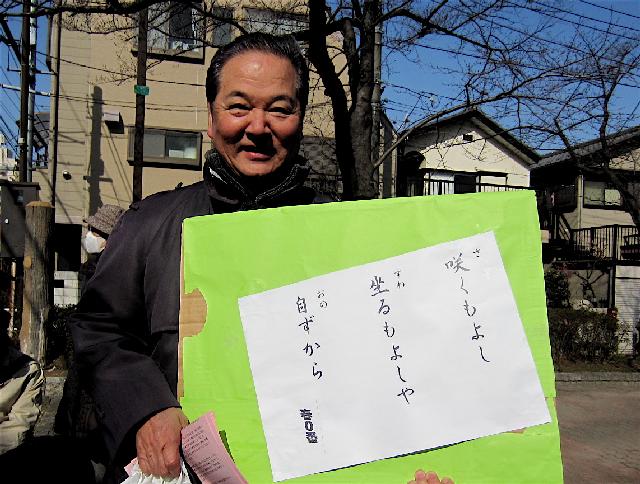 咲くもよし
坐るもよしや
自ずから
さ
すわ
おの